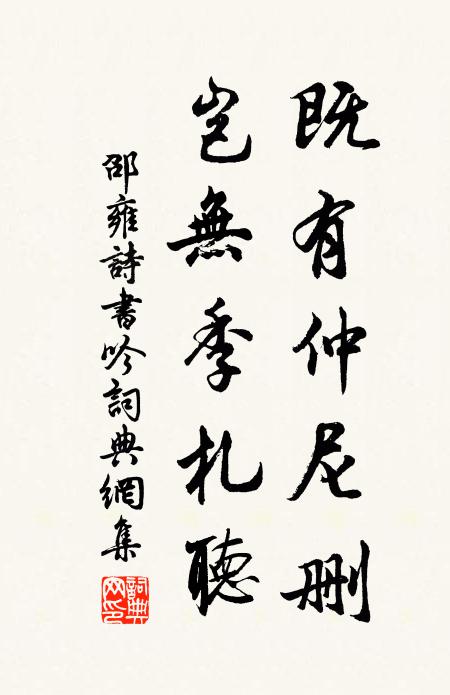 既有仲尼刪
豈無季札聽
邵雍詩書吟詞典網集
詞典網印